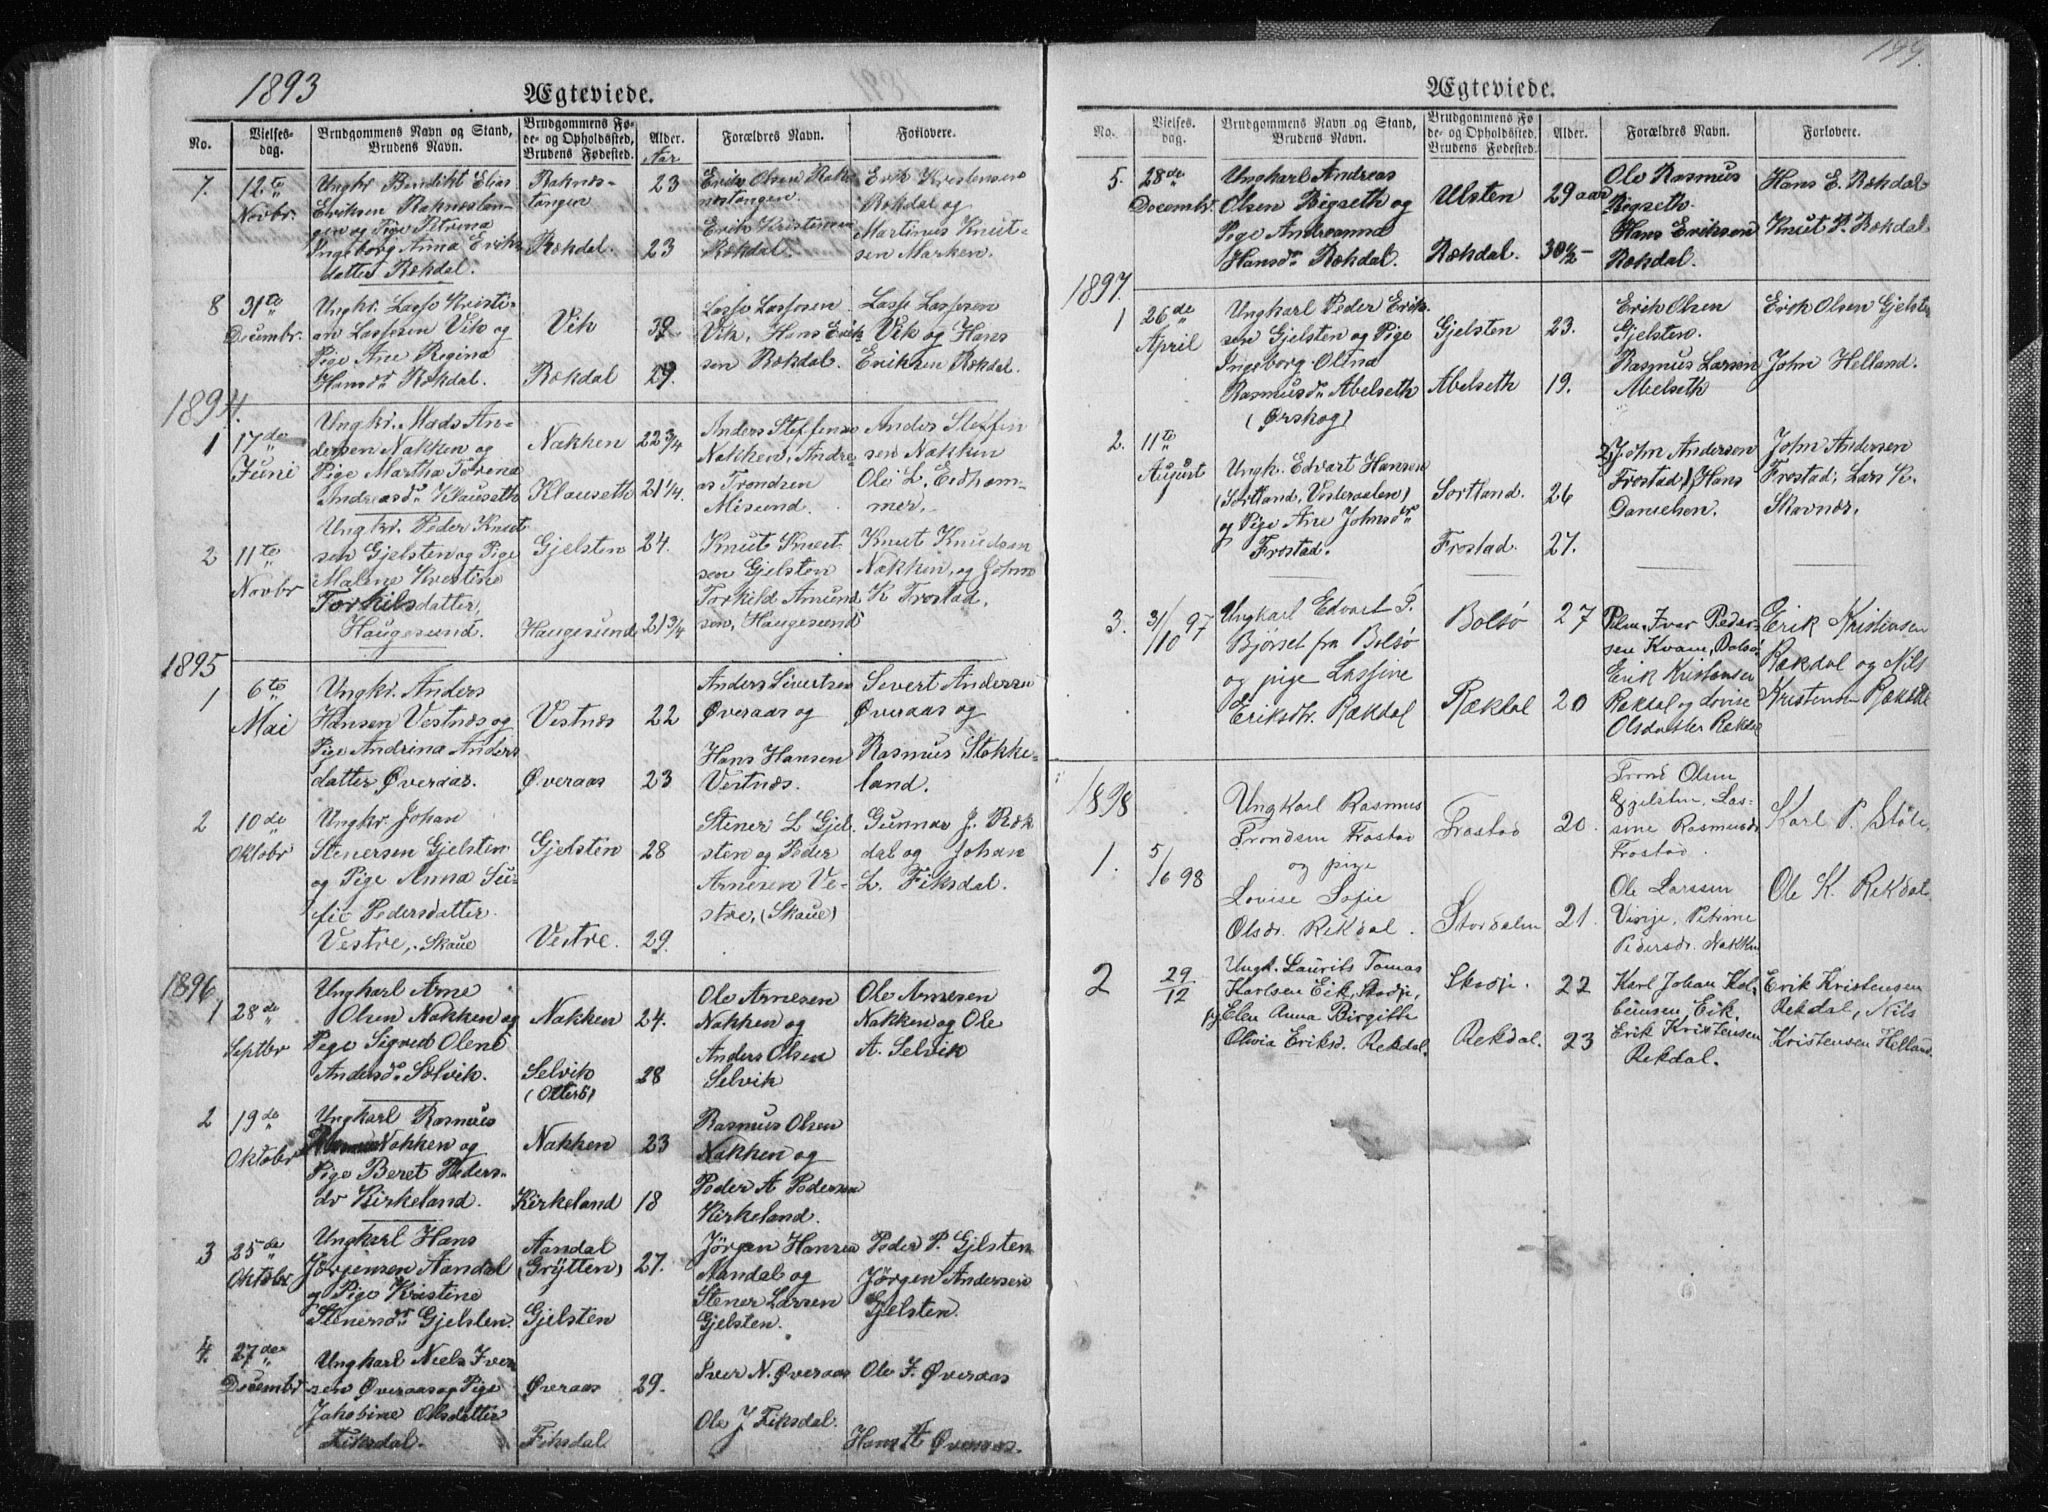 1893
Ægteviede.
No.
Vielses-
dag.
Brudgommens Navn og Stand,
Brudens Navn.
Brudgommens Fø-
de- og Opholdssted,
Brudens Fødested.
Alder.
Aar
Forældres Navn.
Forlovere.
7.
12te
Novbr.
Ungkr Bendikt Elias
Eriksen Raknestan-
gen og Pige Petrina
Ingeborg Anna Eriks
datter Rækdal.
Raknes-
tangen
Rækdal.
23
23
Erik Olsen Rak
nestangen.
Erik Kristensen
Rækdal.
Erik Kristensen
Rækdal og
Martinus Knut-
sen Marken.
8
31te
Decembr.
Ungkr. Lasse Kristi-
an Lassesen Vik og
Pige Ane Regina
Hansdr Rækdal.
Vik
Rækdal
39
29.
Lasse Lassesen
Vik. Hans Erik
sen Rækdal.
Lasse Lassesen
Vik og Hans
Eriksen Rækdal.
1894.
1
17de
Juni
Ungkr. Mads An-
dersen Nakken og
Pige Martha Petrena
Andreasdr Klauseth
Nakken
Klauseth
22 3/4
21 1/4.
Anders Steffens
Nakken, Andre-
as Trondsen
Misund.
Anders Steffen
sen Nakken
Ole L. Eidham-
mer.
2
11te
Novbr
Ungkr. Peder Knut
sen Gjelsten og Pige
Malene Krestine
Torkilsdatter,
Haugesund.
Gjelsten
Haugesund
24.
21 3/4
Knut Knut
sen Gjelsten
Torkild Amund
sen, Haugesund
Knut Knudsen
Nakken, og John
K Frostad.
1895
1
6te
Mai
Ungkr. Anders
Hansen Vestnæs og
Pige Andrina Anders
datter Øveraas.
Vestnæs
Øveraas
22
23
Anders Sivertsen
Øveraas og
Hans Hansen
Vestnæs.
Severt Andersen
Øveraas og
Rasmus Stokke-
land.
2
10de
Oktobr
Ungkr. Johan
Stenersen Gjelsten
og Pige Anna Su-
fie Pedersdatter
Vestre, Skaue
Gjelsten
Vestre.
28
29.
Stener L Gjel
sten og Peder
Arnesen Ve-
stre, (Skaue)
Gunnar J. Ræk
dal og Johan
L. Fiksdal.
1896
1
28de
Septbr
Ungkarl Arne
Olsen Nakken og
Pige Sigved Olene
Andersdr Selvik.
Nakken
Selvik
(Otterö)
24.
28
Ole Arnesen
Nakken og
Anders Olsen
Selvik
Ole Arnesen
Nakken og Ole
A. Selvik
2
19de
Oktobr
Ungkarl Rasmus
Nakken og
Pige Beret Peders-
dr Kirkeland.
Nakken
Kirkeland
23
18
Rasmus Olsen
Nakken og
Peder A Pedersen
Kirkeland.
3
25de
Oktobr
Ungkarl Hans
Jörgensen Aandal
og Pige Kristine
Stenersdr Gjelsten.
Aandal
(Grytten)
Gjelsten
27.
Jörgen Hansen
Aandal og
Stener Larsen
Gjelsten.
Peder P. Gjelsten
Jörgen Andersen
Gjelsten.
4.
27de
Decembr
Ungkarl Niels Iver
sen Øveraas og Pige
Jakobine Olsdatter
Fiksdal.
Øveraas
Fiksdal
29.
Iver N. Øveraas
Ole J Fiksdal.
Ole I. Øveraas
Hans A Øveraas.
199.
Ægteviede.
No.
Vielses-
dag.
Brudgommens Navn og Stand,
Brudens Navn.
Brudgommens Fø
de- og Opholdssted,
Brudens Fødested.
Alder.
Forældres Navn.
Forlovere.
5.
28de
Decembr.
Ungkarl Andreas
Olsen Bigseth og
Pige Andreanna
Hansdr Rækdal.
Ulsten
Rækdal.
29 aar
30 1/2 -
Ole Rasmus
Bigseth.
Hans Eriksen
Rækdal.
Hans E. Rækdal
Knut P. Rækdal
1897.
1
26de
April
Ungkarl Peder Erik
sen Gjelsten og Pige
Ingeborg Olina
Rasmusdr Abelseth
(Ørskog)
Gjelsten
Abelseth
23.
19.
Erik Olsen
Gjelsten.
Rasmus Larsen
Abelseth
Erik Olsen Gjelsten
John Helland.
2.
11te
August
Ungk. Edvart Hansen
(Sortland, Vesteraalen)
og Pige Ane Johnsdr
Frostad.
Sortland.
Frostad.
26
27.
John Andersen
Frostad, Hans
Danielsen.
John Andersen
Frostad, Lars K.
Skavnæs.
3.
31/10 97
Ungkarl Edvart P.
Bjørset fra Bolsö
og pige Lassine
Eriksdr. Rækdal
Bolsö
Rækdal
27
20
Iver Peder-
sen Kvam, Bolsö
Erik Kristensen
Rækdal og Lovise
Olsdatter Rækdal
Erik Kristensen
Rækdal og Nils
Kristensen Rækdal
1898
1.
5/6 98
Ungkarl Rasmus
Trondsen Frostad
og pige
Lovise Sofie
Olsdr. Rekdal.
Frostad
Stordalen
20.
21.
Trond Olsen
Gjelsten, Las-
sine Rasmusdr
Frostad.
Ole Larssen
Visnje, Petrine
Pedersdr. Nakken
Karl P. Stöle
Ole K. Rekdal
2
29/12
Ungk. Laurits Tomas
Karlsen Eik, Skodje,
pg Elen Anna Birgitte
Olivia Eriksd. Rekdal.
Skodje.
Rekdal.
22
23
Karl Johan Kol-
beinsen, Eik.
Erik Kristensen
Rekdal.
Erik Kristensen
Rekdal, Nils
Kristensen Helland.